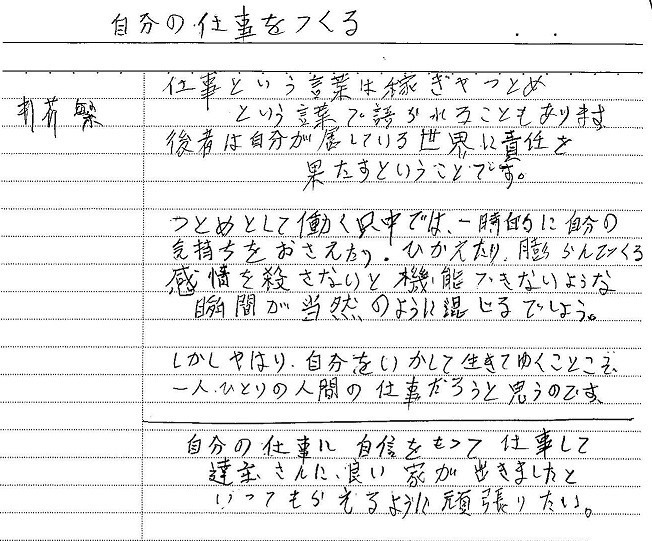 自分の仕事をつくる
仕事という言葉は稼ぎやつとめ
という言葉で語られることもあります
後者は自分が属している世界に責任を
果たすということです。
つとめとして働く只中では、一時的に自分の
気持ちをおさえたり、ひかえたり、膨らんでくる
感情を殺さないと機能できないような
瞬間が当然のように混じるでしょう。
しかしやはり、自分をいかして生きてゆくことこそ、
一人ひとりの人間の仕事だろうと思うのです。
自分の仕事に自信をもって仕事して
さんに、良い家が出きましたと
いってもらえるように頑張りたい。